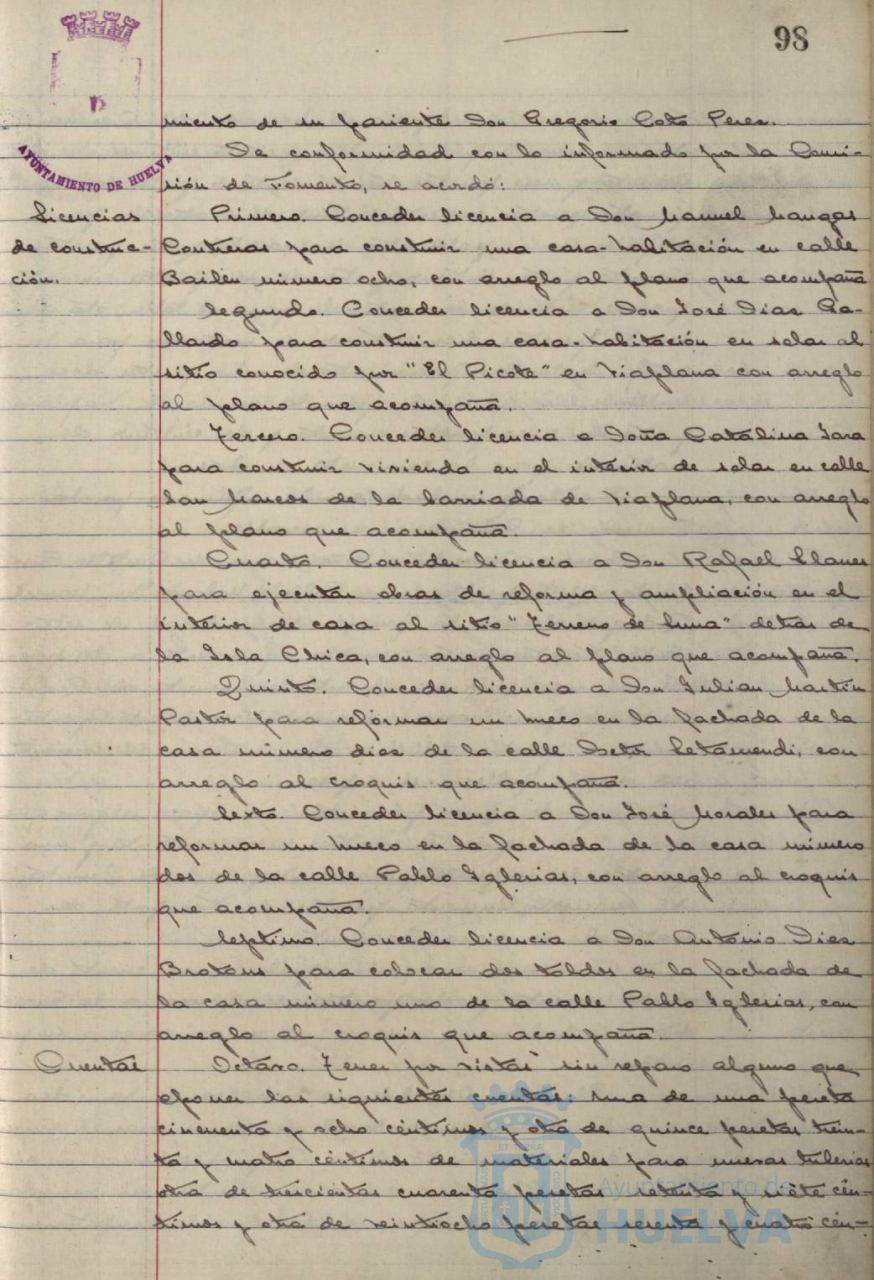 98
AYUNTAMIENTO DE HUELVA
miento de su pariente Don Gregorio Coto Perez.
De conformidad con lo informado por la Comi-
sión de Fomento, se acordó:
Licencias
de construc-
ción.
Primero. Conceder licencia a Don Manuel Mangas
Contreras para construir una casa-habitación en calle
Bailen número ocho, con arreglo al plano que acompaña
Segundo. Conceder licencia a Don José Diaz Ga-
llardo para construir una casa-habitación en solar al
sitio conocido por "El Picote" en Viaplana con arreglo
al plano que acompaña.
Tercero. Conceder licencia a Doña Catalina Jara
para construir vivienda en el interior de solar en calle
San Marcos de la barriada de Viaplana, con arreglo
al plano que acompaña.
Cuarto. Conceder licencia a Don Rafael Llanes
para ejecutar obras de reforma y ampliación en el
interior de casa al sitio "Terreno de Luna" detras de
la Isla Chica, con arreglo al plano que acompaña.
Quinto. Conceder licencia a Don Julian Martin
Pastor para reformar un hueco en la fachada de la
casa número diez de la calle Doctor Letamendi, con
arreglo al croquis que acompaña.
Sexto. Conceder licencia a Don José Morales para
reformar un hueco en la fachada de la casa número
dos de la calle Pablo Iglesias, con arreglo al croquis
que acompaña.
Septimo. Conceder licencia a Don Antonio Diaz
Brotons para colocar dos toldos en la fachada de
la casa número uno de la calle Pablo Iglesias, con
arreglo al croquis que acompaña.
Cuentas
Octavo. Tener por vistas sin reparo alguno que
oponer las siguientes cuentas: una de una peseta
cincuenta y ocho céntimos y otra de quince pesetas trein-
ta y cuatro céntimos de materiales para nuevas tuberias
otra de trescientas cuarenta pesetas setenta y siete cén-
timos y otra de veintiocho pesetas sesenta y cuatro cén-
Ayuntamiento de
HUELVA